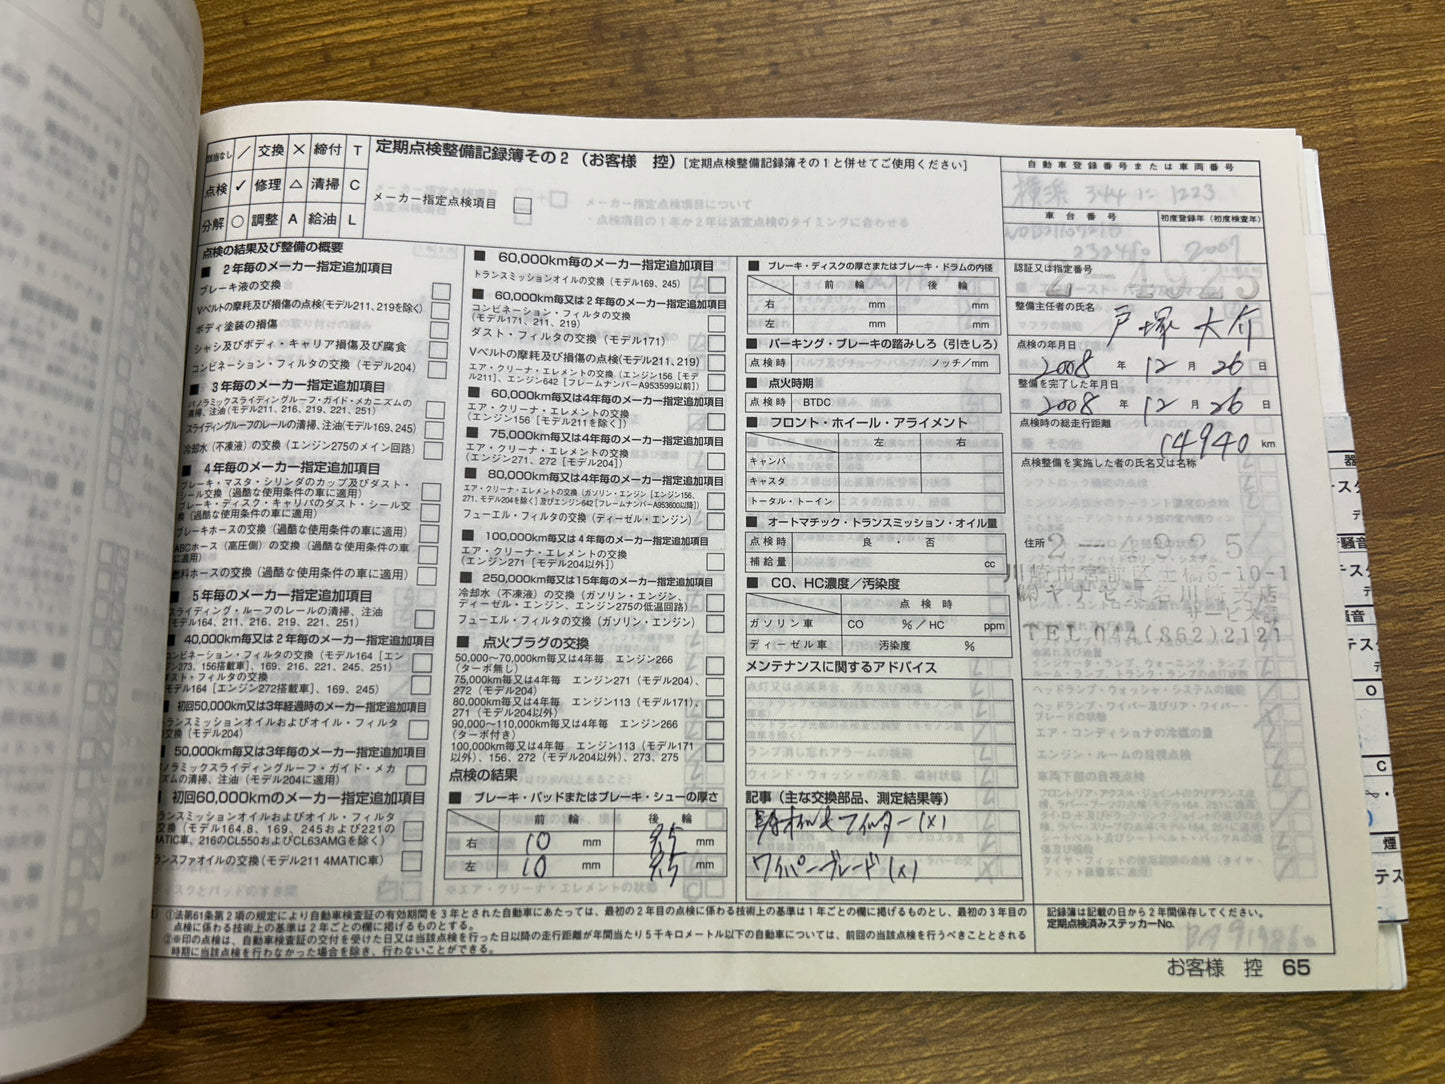 該当なし ／ 交換 × 締付 T
点検 ✓ 修理 △ 清掃 C
分解 ○ 調整 A 給油 L
定期点検整備記録簿その2（お客様 控）[定期点検整備記録簿その1と併せてご使用ください]
メーカー指定点検項目
点検の結果及び整備の概要
■ 2年毎のメーカー指定追加項目
ブレーキ液の交換
Vベルトの摩耗及び損傷の点検(モデル211、219を除く)
ボディ塗装の損傷
シャシ及びボディ・キャリア損傷及び腐食
コンビネーション・フィルタの交換（モデル204）
■ 3年毎のメーカー指定追加項目
パノラミックスライディングルーフ・ガイド・メカニズムの
清掃、注油（モデル211、216、219、221、251）
スライディングルーフのレールの清掃、注油(モデル169、245)
冷却水（不凍液）の交換（エンジン275のメイン回路）
■ 4年毎のメーカー指定追加項目
ブレーキ・マスタ・シリンダのカップ及びダスト・
シール交換（過酷な使用条件の車に適用）
ブレーキ・ディスク・キャリパのダスト・シール交
換（過酷な使用条件の車に適用）
ブレーキホースの交換（過酷な使用条件の車に適用）
ABCホース（高圧側）の交換（過酷な使用条件の車
に適用）
燃料ホースの交換（過酷な使用条件の車に適用）
■ 5年毎のメーカー指定追加項目
スライディング・ルーフのレールの清掃、注油
（モデル164、211、216、219、221、251）
■ 40,000km毎又は2年毎のメーカー指定追加項目
コンビネーション・フィルタの交換（モデル164［エン
ジン273、156搭載車］、169、216、221、245、251）
ダスト・フィルタの交換
（モデル164［エンジン272搭載車］、169、245）
■ 初回50,000km又は3年経過時のメーカー指定追加項目
トランスミッションオイルおよびオイル・フィルタ
（モデル204）
■ 50,000km毎又は3年毎のメーカー指定追加項目
パノラミックスライディングルーフ・ガイド・メカ
ニズムの清掃、注油（モデル204に適用）
■ 初回60,000kmのメーカー指定追加項目
トランスミッションオイルおよびオイル・フィルタ
の交換（モデル164.8、169、245および221の
4MATIC車、216のCL550およびCL63AMGを除く）
トランスファオイルの交換(モデル211 4MATIC車）
■ 60,000km毎のメーカー指定追加項目
トランスミッションオイルの交換（モデル169、245）
■ 60,000km毎又は2年毎のメーカー指定追加項目
コンビネーション・フィルタの交換
（モデル171、211、219）
ダスト・フィルタの交換（モデル171）
Vベルトの摩耗及び損傷の点検(モデル211、219)
エア・クリーナ・エレメントの交換（エンジン156［モデ
ル211］、エンジン642［フレームナンバーA953599以前］）
■ 60,000km毎又は4年毎のメーカー指定追加項目
エア・クリーナ・エレメントの交換
（エンジン156［モデル211を除く］）
■ 75,000km毎又は4年毎のメーカー指定追加項目
エア・クリーナ・エレメントの交換
（エンジン271、272［モデル204］）
■ 80,000km毎又は4年毎のメーカー指定追加項目
エア・クリーナ・エレメントの交換（ガソリン・エンジン［エンジン156、
271、モデル204を除く］及びエンジン642［フレームナンバーA953600以降］）
フューエル・フィルタの交換（ディーゼル・エンジン）
■ 100,000km毎又は4年毎のメーカー指定追加項目
エア・クリーナ・エレメントの交換
（エンジン271［モデル204以外］）
■ 250,000km毎又は15年毎のメーカー指定追加項目
冷却水（不凍液）の交換（ガソリン・エンジン、
ディーゼル・エンジン、エンジン275の低温回路）
フューエル・フィルタの交換（ガソリン・エンジン）
■ 点火プラグの交換
50,000～70,000km毎又は4年毎 エンジン266
（ターボ無し）
75,000km毎又は4年毎 エンジン271（モデル204）、
272（モデル204）
80,000km毎又は4年毎 エンジン113（モデル171)、
271（モデル204以外）
90,000～110,000km毎又は4年毎 エンジン266
（ターボ付き）
100,000km毎又は4年毎 エンジン113（モデル171
以外）、156、272（モデル204以外）、273、275
点検の結果
■ ブレーキ・パッドまたはブレーキ・シューの厚さ
前 輪 後 輪
右 10 mm 8.5 mm
左 10 mm 8.5 mm
■ ブレーキ・ディスクの厚さまたはブレーキ・ドラムの内径
前 輪 後 輪
右 mm mm
左 mm mm
■ パーキング・ブレーキの踏みしろ（引きしろ）
点検時 ノッチ／mm
■ 点火時期
点検時 BTDC
■ フロント・ホイール・アライメント
左 右
キャンバ
キャスタ
トータル・トーイン
■ オートマチック・トランスミッション・オイル量
点検時 良 ・ 否
補給量 cc
■ CO、HC濃度／汚染度
点 検 時
ガソリン車 CO ％／HC ppm
ディーゼル車 汚染度 ％
メンテナンスに関するアドバイス
記事（主な交換部品、測定結果等）
フィルター (×)
ワイパーブレード (×)
自動車登録番号または車両番号
横浜 344 に 1223
車 台 番 号 初度登録年（初度検査年）
232480 2007
認証又は指定番号
2-4925
整備主任者の氏名
戸塚 大介
点検の年月日
2008 年 12 月 26 日
整備を完了した年月日
2008 年 12 月 26 日
点検時の総走行距離
14940 km
点検整備を実施した者の氏名又は名称
住所
2-4925
川崎市宮前区土橋6-10-1
㈱ヤナセ東名川崎支店
サービス課
TEL 044(862)2121
注）①法第61条第2項の規定により自動車検査証の有効期間を3年とされた自動車にあたっては、最初の2年目の点検に係わる技術上の基準は1年ごとの欄に掲げるものとし、最初の3年目の
点検に係わる技術上の基準は2年ごとの欄に掲げるものとする。
②※印の点検は、自動車検査証の交付を受けた日又は当該点検を行った日以降の走行距離が年間当たり5千キロメートル以下の自動車については、前回の当該点検を行うべきこととされる
時期に当該点検を行わなかった場合を除き、行わないことができる。
記録簿は記載の日から2年間保存してください。
定期点検済みステッカーNo.
お客様 控 65